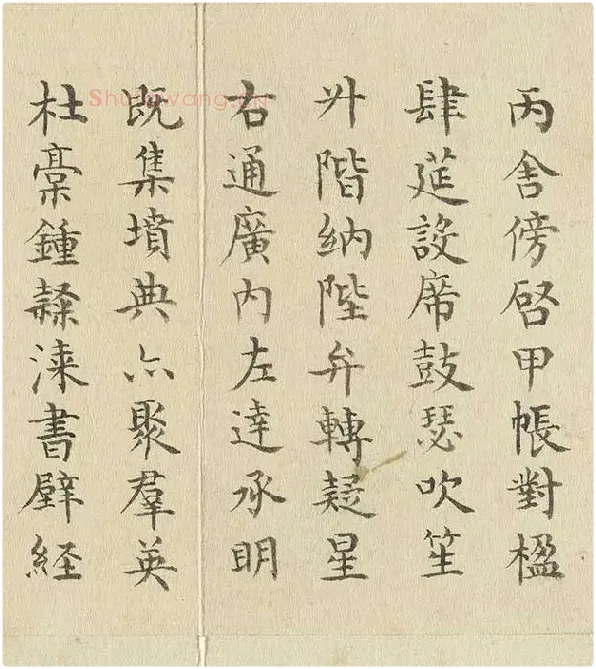 丙舍傍啓甲帳對楹
肆筵設席鼓瑟吹笙
升階納陛弁轉疑星
右通廣内左達承明
既集墳典亦聚羣英
杜稾鍾隸漆書壁経
Shufawang.CN